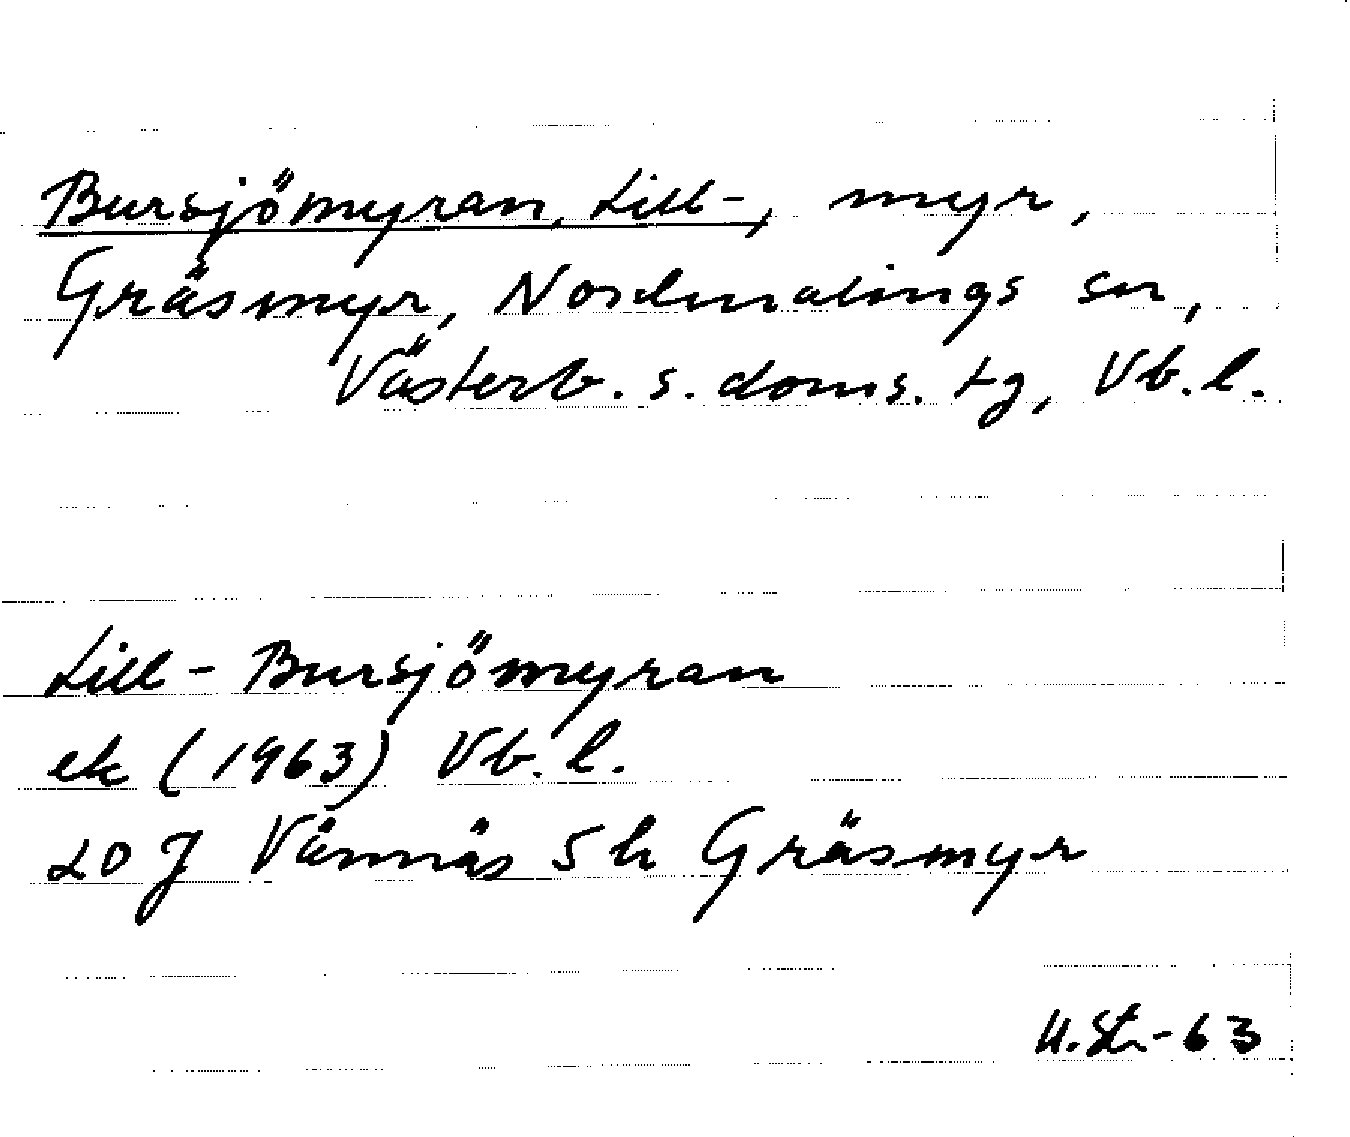 Bursjömyran, Lill-, myr,
Gräsmyr, Nordmalings sn,
Västerb. s. doms. tg, Vb. l.
Lill-Bursjömyran
ek (1963) Vb. l.
20 J Vännäs 5 h Gräsmyr
U. St-63